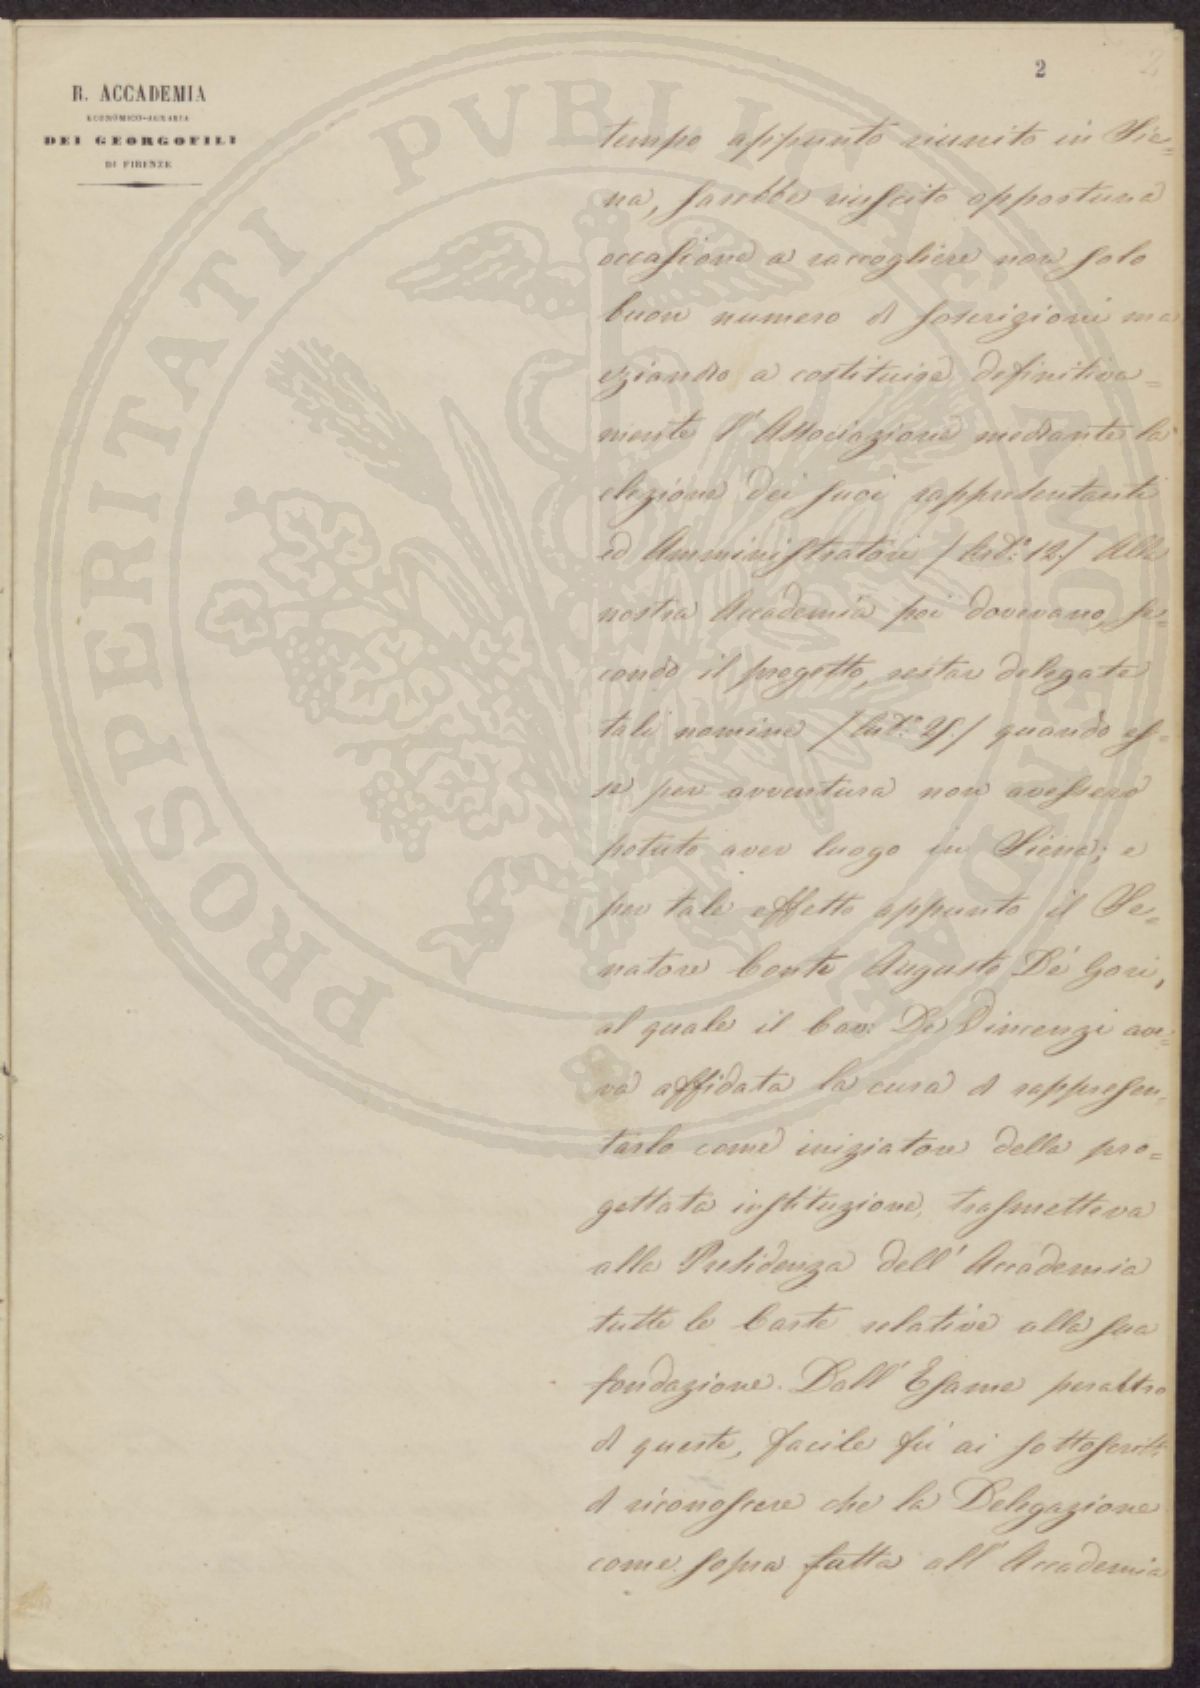 R. ACCADEMIA
ECONOMICO-AGRARIA
DEI GEORGOFILI
DI FIRENZE
2
tempo appunto riunito in Sie=
na, sarebbe riuscito opportuna
occasione a raccogliere non solo
buon numero di soscrizioni ma
eziandio a costituire definitiva=
mente l'Associazione mediante la
elezione dei suoi rappresentanti
ed Amministratori /Art.° 12./ Alla
nostra Accademia poi dovevano, se=
condo il progetto, restar delegate
tali nomine /Art.° 25./ quando es=
se per avventura non avessero
potuto aver luogo in Siena; e
per tale effetto appunto il Se=
natore Conte Augusto De' Gori,
al quale il Cav: De Vincenzi ave=
va affidata la cura di rappresen=
tarlo come iniziatore della pro=
gettata instituzione, trasmetteva
alla Presidenza dell'Accademia
tutte le Carte relative alla sua
fondazione. Dall'Esame peraltro
di queste, facile fù ai sottoscritti
di riconoscere che la Delegazione
come sopra fatta all'Accademia
PROSPERITATI PVBLICAE AVGENDAE